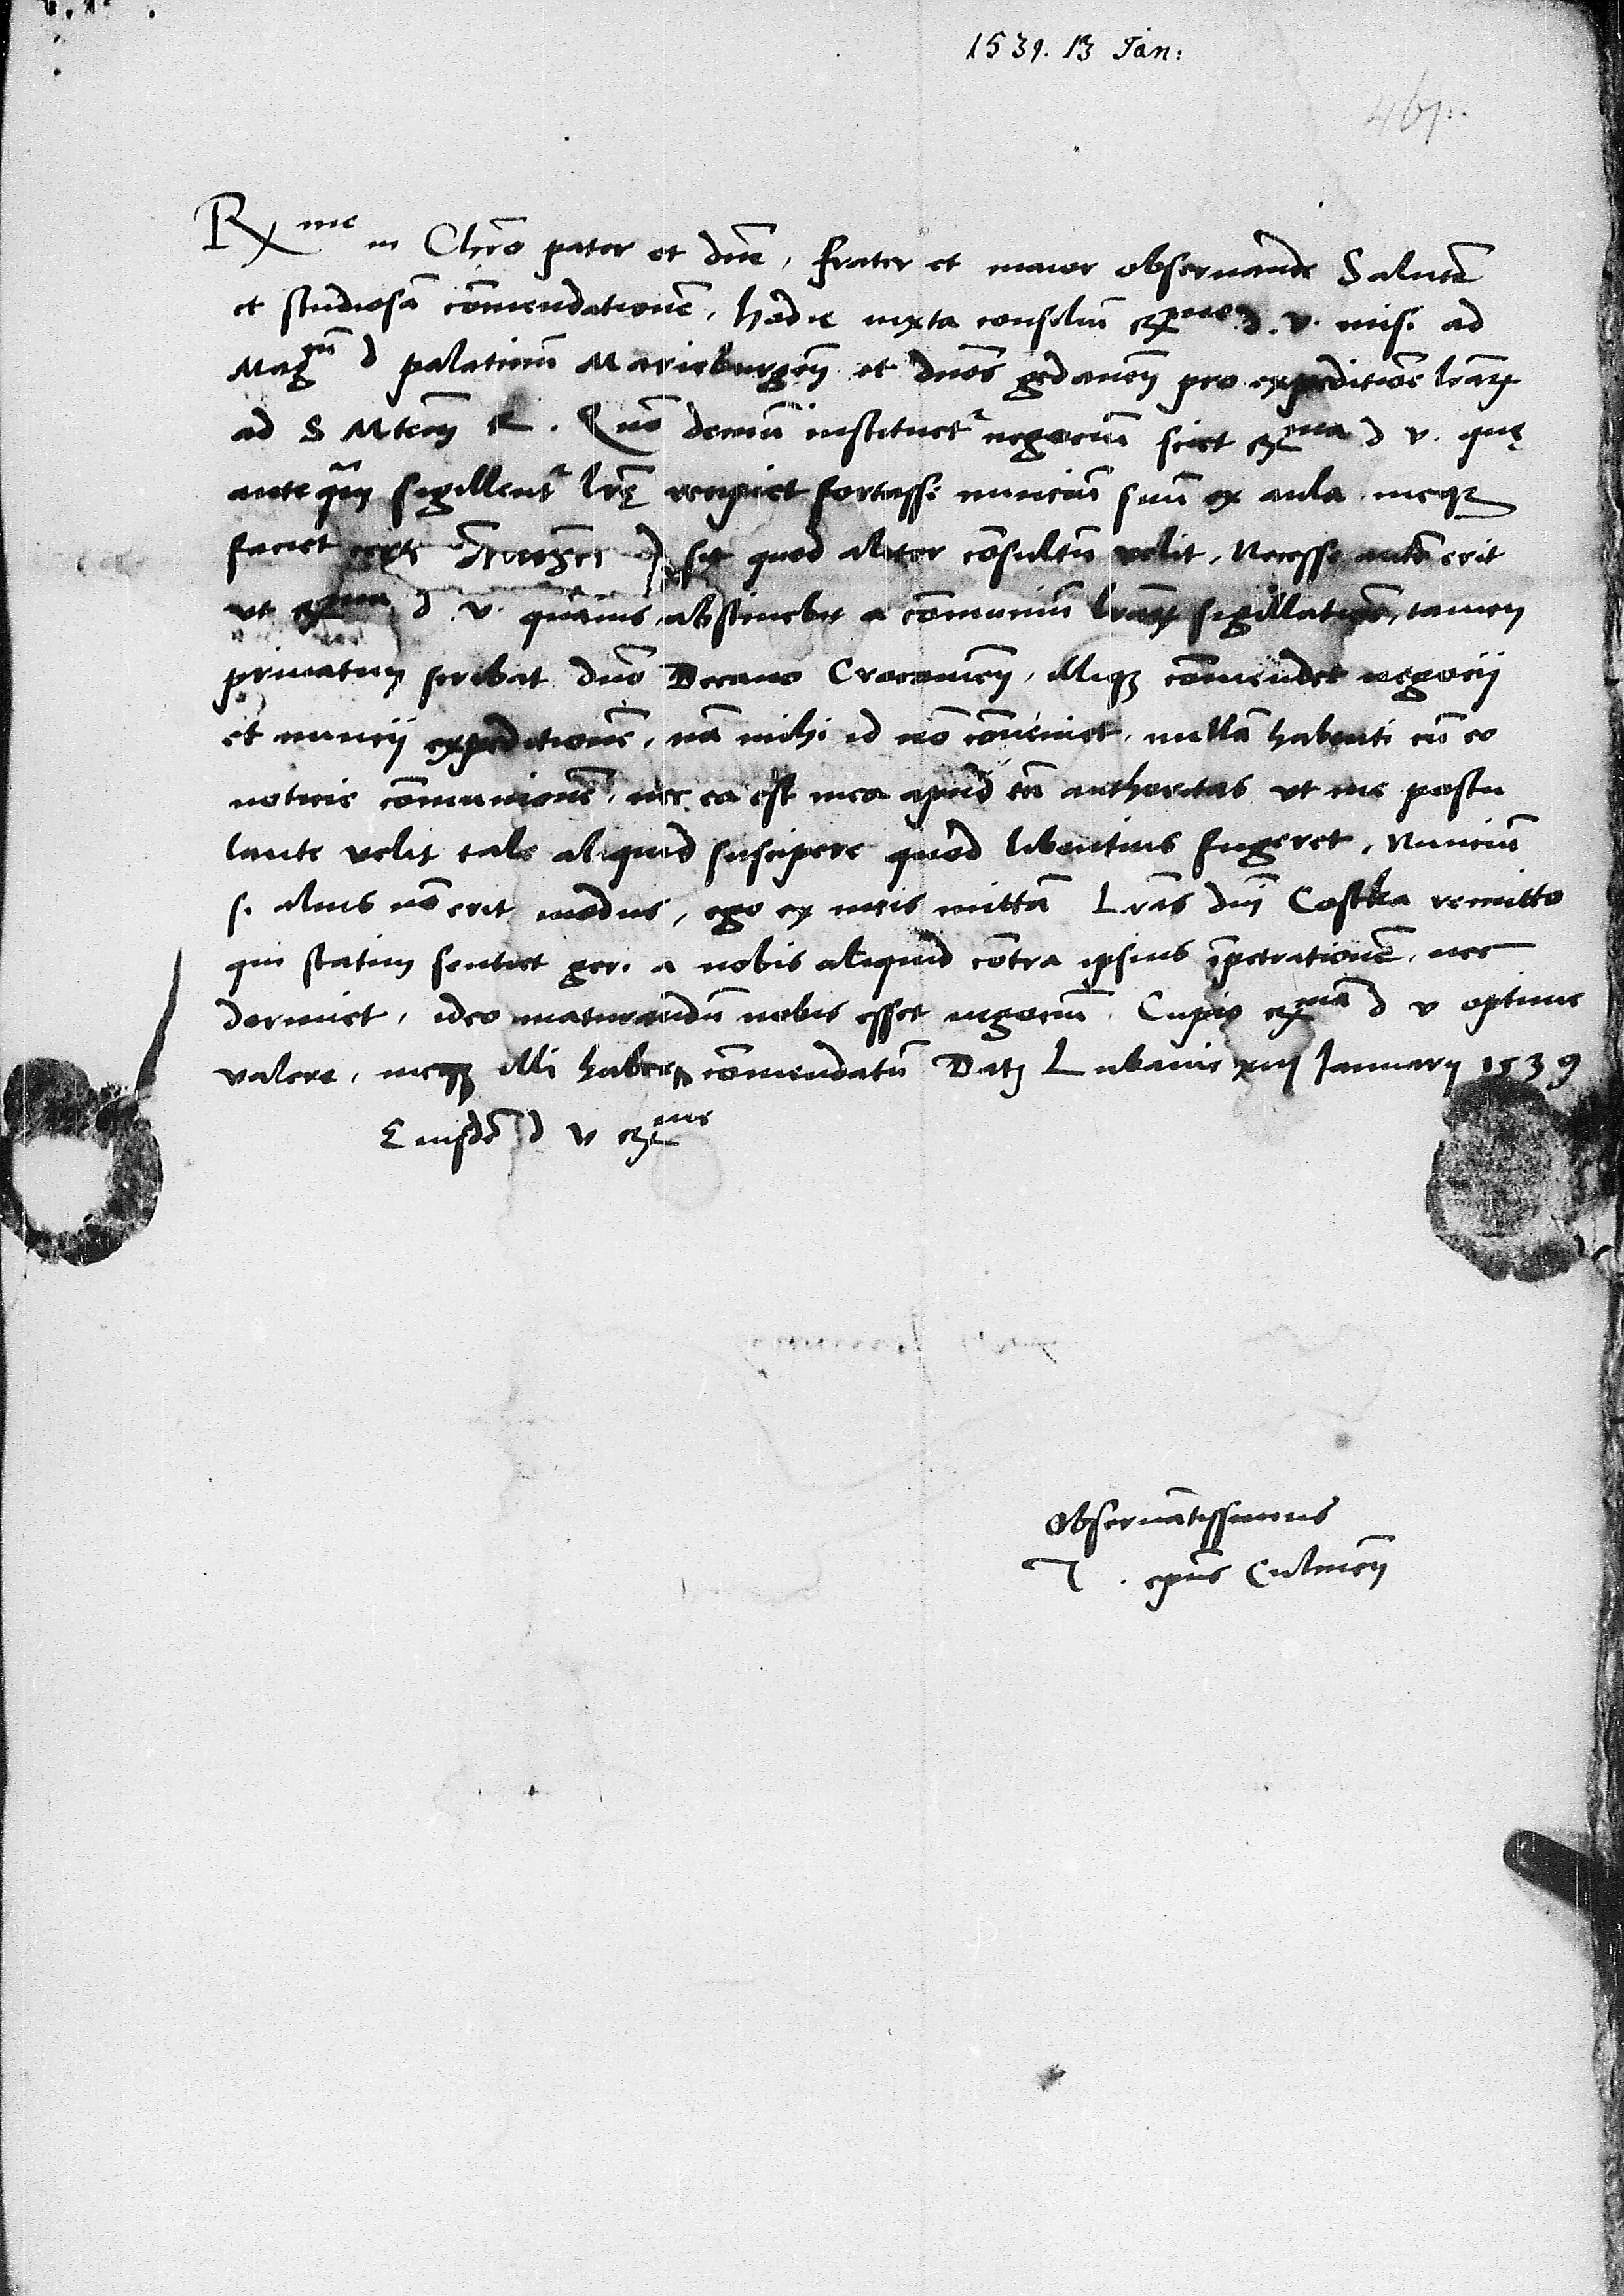 1539. 13 Jan:
467.
Rx me in Chro pater et dne, frater et maior observande Salute
et studiosa comendatione, hodie iuxta consiliu Rme d. v. misi ad
Mag cu d palatinu Marieburgen et dnos gedanen pro expeditione lraru
ad S Mtem R. Quo demu instituet negociu sciet Rma d v. que
anteqm sigillent lre recipiet fortassi nunciu suu ex aula meqz
faciet certe si quod aliter consultu velit, Necesse aute erit
ut Rma d v. quavis abstinebit a comuniu lraru sigillatione, tamen
privatim scribat dno Decano Cracovien, illiqz comendet negocii
et nuncii expeditione, na mihi id no conveniet, nulla habenti cu eo
noticie comunione, nec ea est mea apud eu authoritas ut me postu
lante velit tale aliquid suscipere quod libentius fugeret, Nunciu
si alius no erit modus, ego ex meis mitta Lras dni Costka remitto
qui statim sentiet geri a nobis aliquid contra ipsius impetratione, nec
dormiet, ideo maturandu nobis esset negociu. Cupio Rma d v optime
valere, meqz illi habere comendatu Datz Lubavie xiii Januarii 1539
Eiusde d v Rme
observatissimus
T. epus Culmen